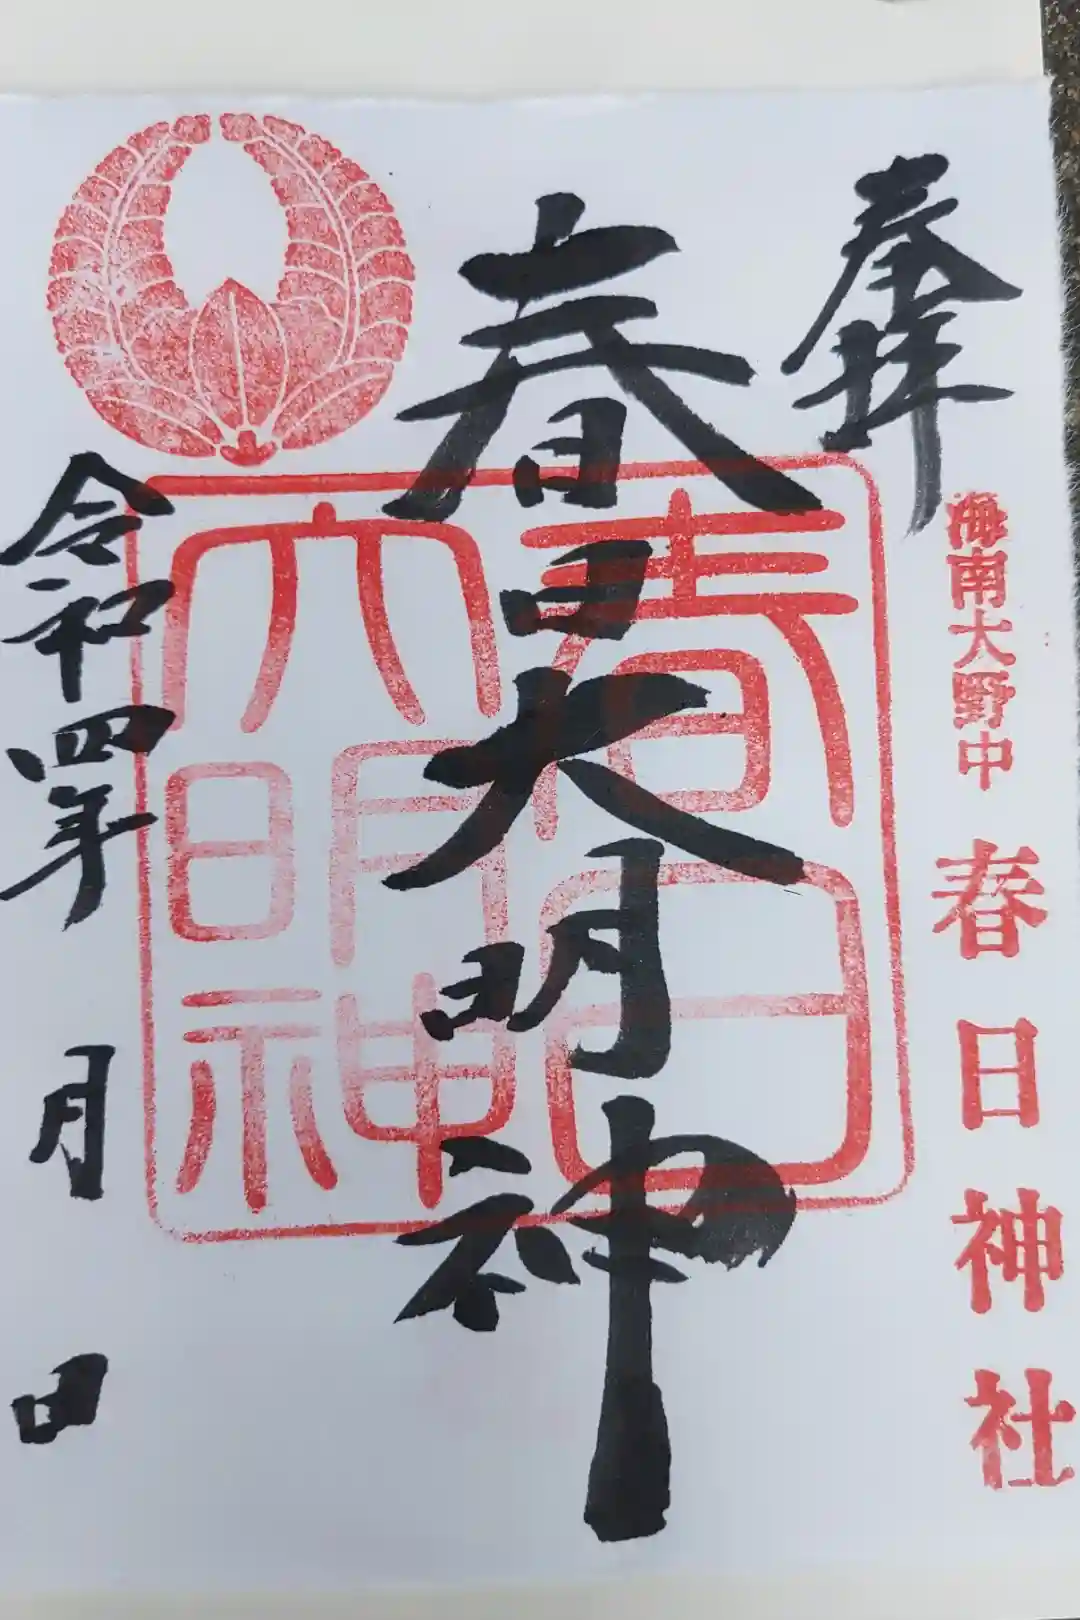 奉拝
海南大野中 春日神社
春日大明神
春日
大明神
令和四年 月 日